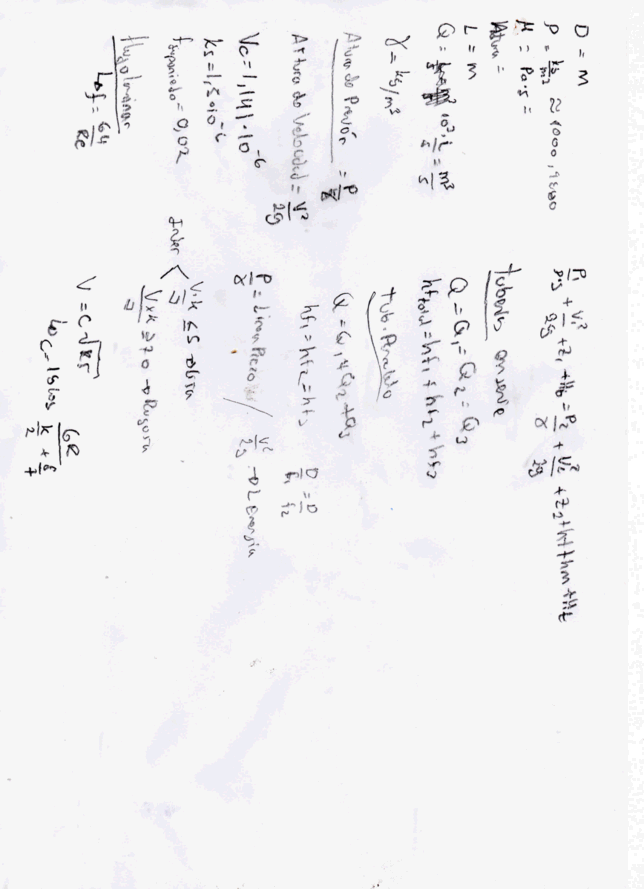 D = M
P = kg/m3 ≈ 1000, 9800
M = Pa·s =
L = m
Q = 10³·L/s = m³/s
γ = kg/m³
Altura de Presión = P/γ
Altura de Velocidad = V²/2g
Vc = 1,141·10⁻⁶
ks = 1,5·10⁻⁶
f supuesto = 0,02
Flujo laminar
↳ f = 64/Re
P1/ρg + V1²/2g + Z1 + Hb = P2/γ + V2²/2g + Z2 + hf + hm + Ht
Tuberias en serie
Q = Q1 = Q2 = Q3
hf total = hf1 + hf2 + hf3
Tub. Paralelo
Q = Q1 + Q2 + Q3
hf1 = hf2 = hf3
P/γ = Linea Piezo / V²/2g → L Energia
V·k ≤ 5 → lisa
V·k ≥ 70 → Rugosa
V = C √RS
↳ C = 18 log 6R / k/2 + δ/7